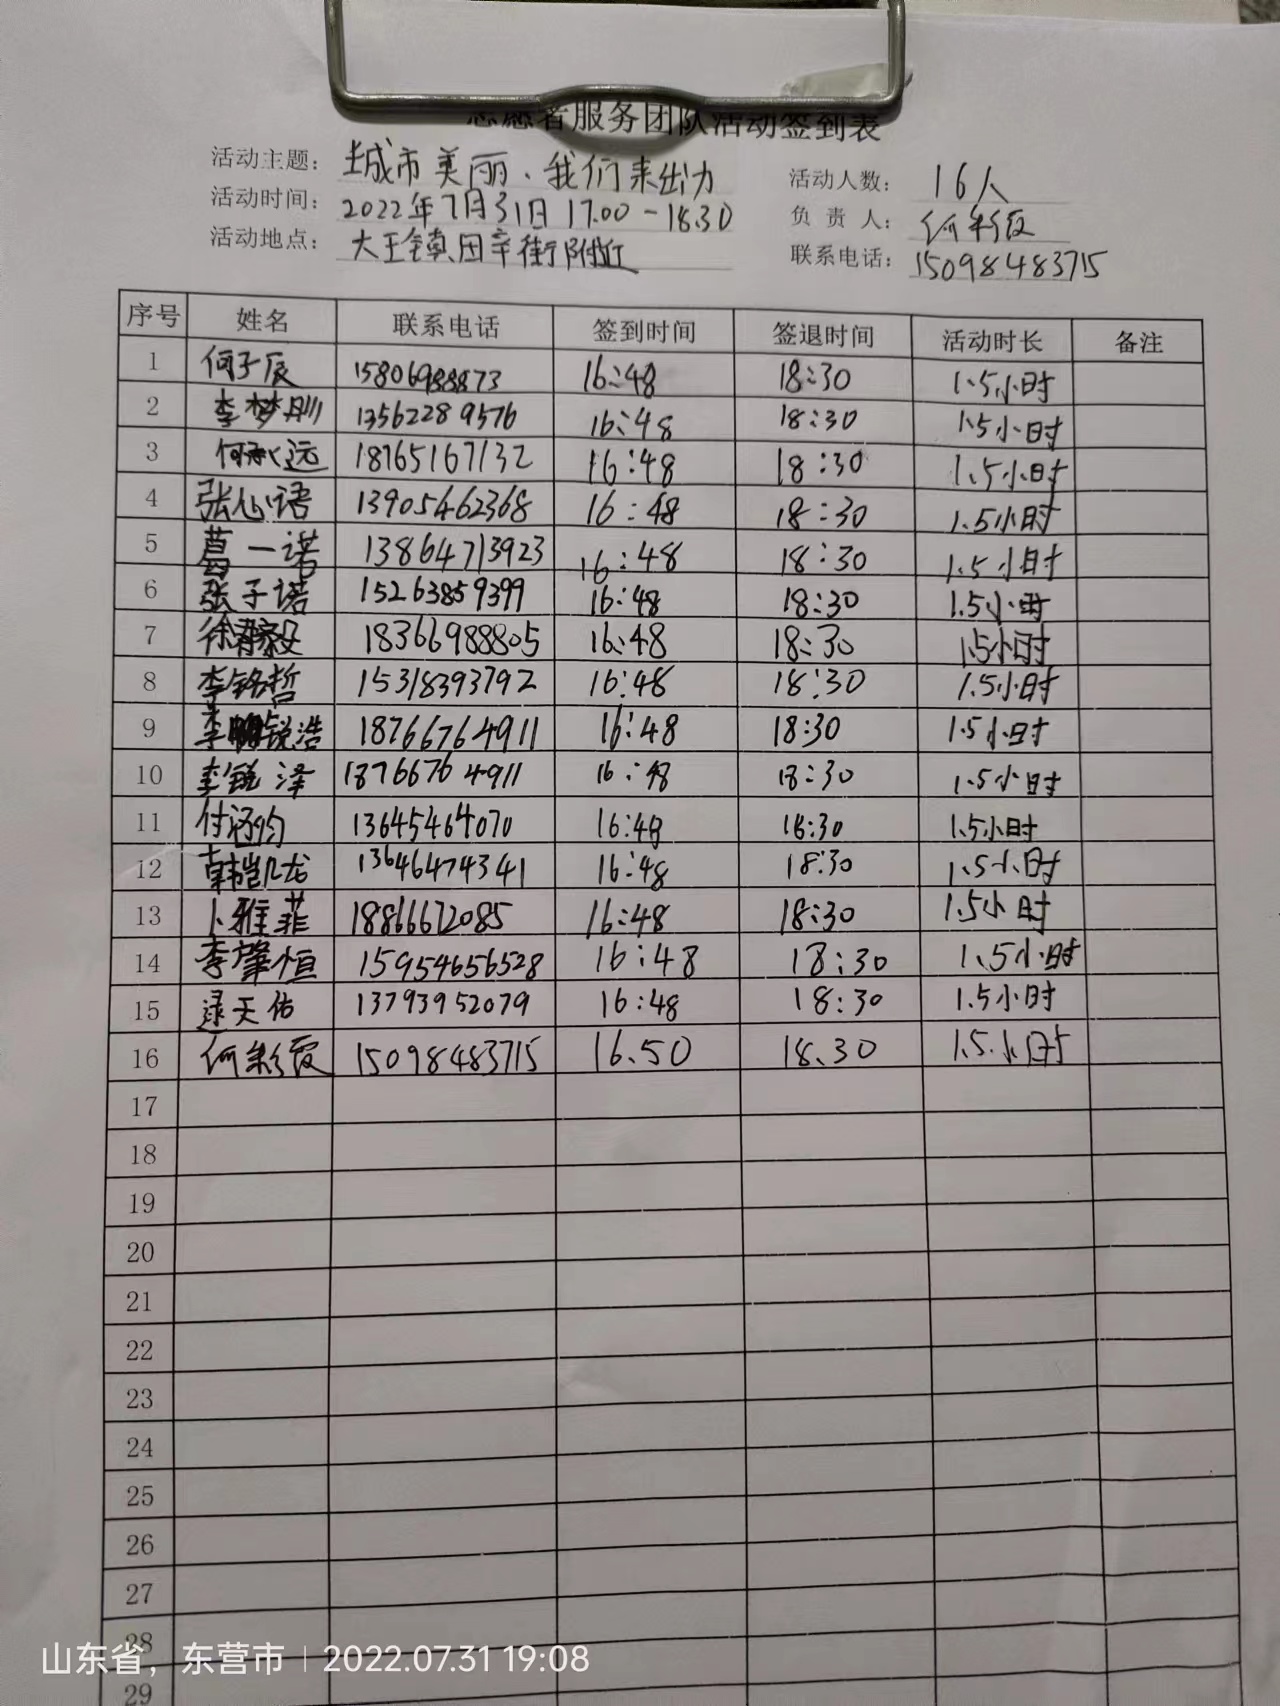 志愿者服务团队活动签到表
活动主题： 城市美丽、我们来出力 活动人数： 16人
活动时间： 2022年7月31日 17.00-18.30 负责人： 何彩霞
活动地点： 大王镇田辛街附近 联系电话： 15098483715
序号 姓名 联系电话 签到时间 签退时间 活动时长 备注
1 何子辰 15806988873 16:48 18:30 1.5小时
2 李梦圳 13562289576 16:48 18:30 1.5小时
3 何承远 18765167132 16:48 18:30 1.5小时
4 张心语 13905462368 16:48 18:30 1.5小时
5 葛一诺 13864713923 16:48 18:30 1.5小时
6 张子诺 15263859399 16:48 18:30 1.5小时
7 18366988805 16:48 18:30 1.5小时
8 李铭哲 15318393792 16:48 18:30 1.5小时
9 李锐浩 18766764911 16:48 18:30 1.5小时
10 李锐泽 18766764911 16:48 18:30 1.5小时
11 付涵钧 13645464070 16:48 18:30 1.5小时
12 韩凯龙 13646474341 16:48 18:30 1.5小时
13 卜雅菲 18866672085 16:48 18:30 1.5小时
14 李肇恒 15954656528 16:48 18:30 1.5小时
15 逯天佑 13793952079 16:48 18:30 1.5小时
16 何彩霞 15098483715 16.50 18.30 1.5小时
17
18
19
20
21
22
23
24
25
26
27
28
29
山东省，东营市 | 2022.07.31 19:08